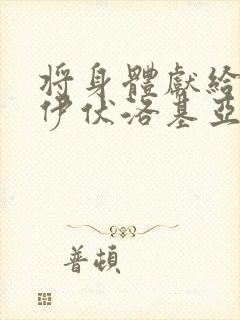 将身體獻給
伊伏洛基亞
普頓